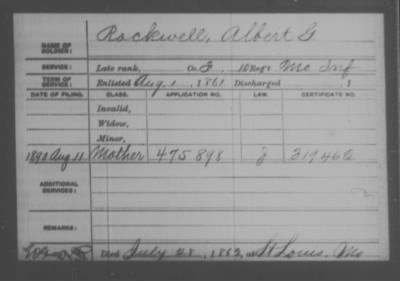 Rockwell, Albert G
NAME OF SOLDIER:
SERVICE: Late rank, Co. F, 10 Reg't Mo Inf
TERM OF SERVICE: Enlisted Aug 1, 1861 Discharged , 1
DATE OF FILING. CLASS. APPLICATION NO. LAW. CERTIFICATE NO.
Invalid,
Widow,
Minor,
1890 Aug 11 Mother 475.898 319460
ADDITIONAL SERVICES:
REMARKS:
Died July 28, 1862, at St Louis, Mo